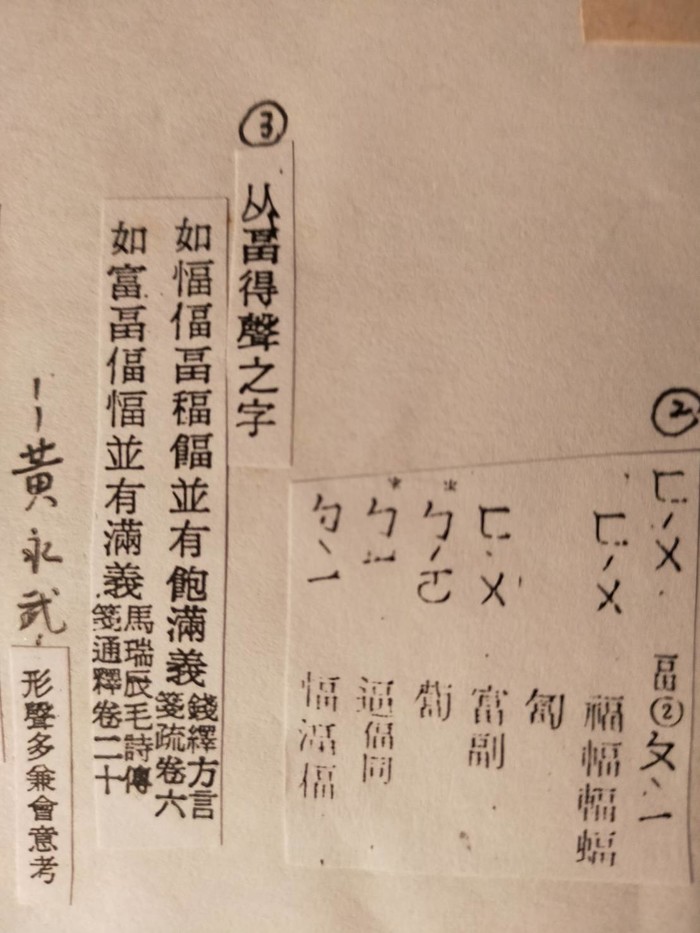 ②
ㄈㄨˊ 畐②ㄆㄧˋ
ㄈㄨˊ 福幅輻蝠
匐
ㄈㄨˋ 富副
*ㄅㄛˊ 蔔
*ㄅㄧ 逼偪同
ㄅㄧˋ 愊湢偪
③
从畐得聲之字
如愊偪畐稫並有飽滿義
錢繹方言
箋疏卷六
如富畐偪愊並有滿義
馬瑞辰毛詩傳
箋通釋卷二十
——黃永武
形聲多兼會意考